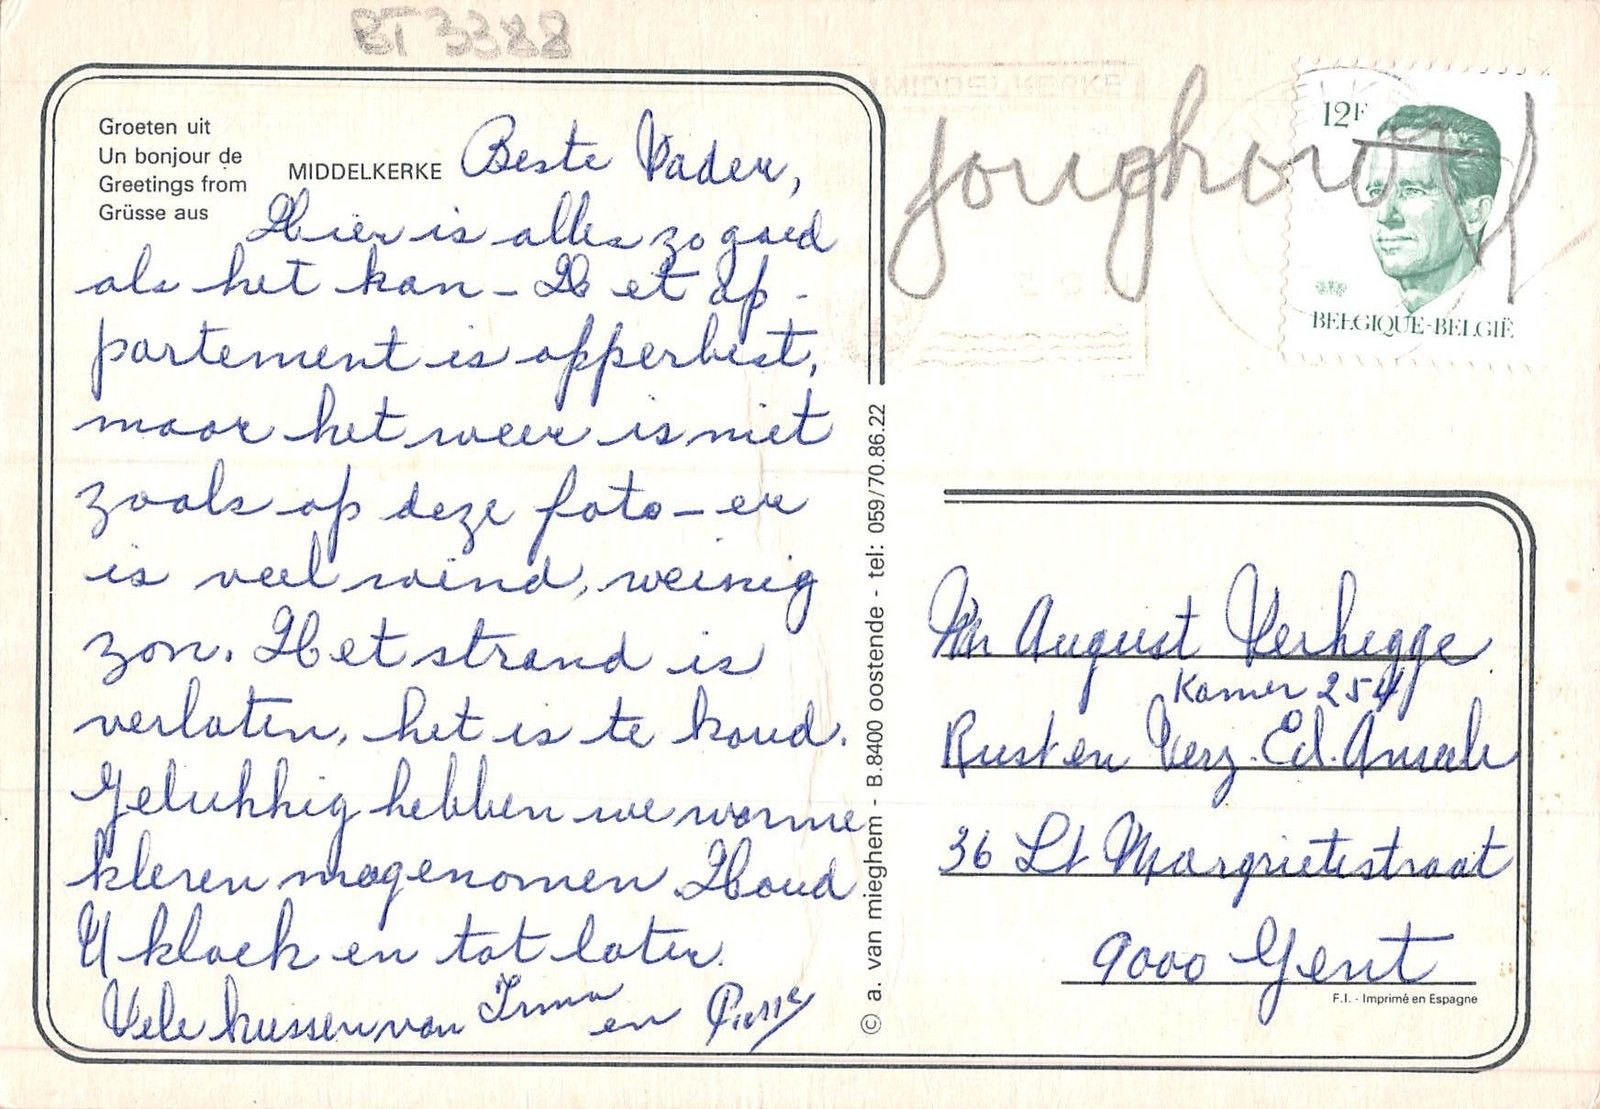 BT 3388
Groeten uit
Un bonjour de
Greetings from
Grüsse aus
MIDDELKERKE
Beste Vader,
Hier is alles zo goed
als het kan - Het ap-
partement is opperbest,
maar het weer is niet
zoals op deze foto - er
is veel wind, weinig
zon. Het strand is
verlaten, het is te koud.
Gelukkig hebben we warme
kleren meegenomen. Houd
U kloek en tot later.
Vele kussen van Irma en Pierre
© a. van mieghem - B.8400 oostende - tel: 059/70.86.22
MIDDELKERKE
12F
BELGIQUE-BELGIË
Mr August Verhegge
Kamer 254
Rust en Verz. Ed. Anseele
36 St Margrietestraat
9000 Gent
F.I. - Imprimé en Espagne